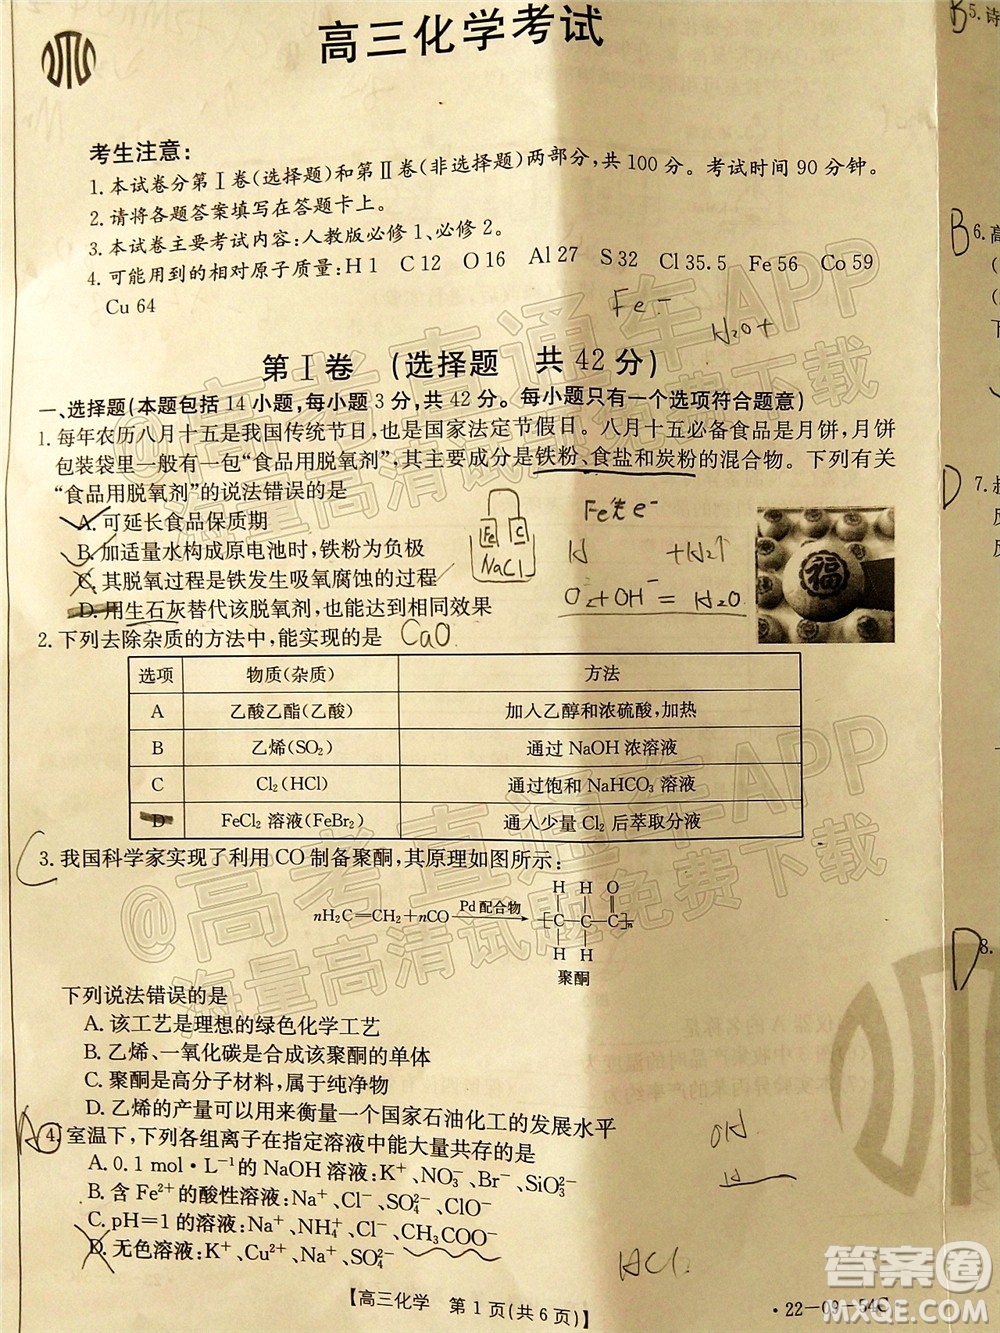 高三化学考试
考生注意:
1.本试卷分第Ⅰ卷(选择题)和第Ⅱ卷(非选择题)两部分,共100分。考试时间90分钟。
2.请将各题答案填写在答题卡上。
3.本试卷主要考试内容:人教版必修1、必修2。
4.可能用到的相对原子质量:H 1 C 12 O 16 Al 27 S 32 Cl 35.5 Fe 56 Co 59
Cu 64
Fe -
H₂O+
第Ⅰ卷 (选择题 共42分)
一、选择题(本题包括14小题,每小题3分,共42分。每小题只有一个选项符合题意)
1.每年农历八月十五是我国传统节日,也是国家法定节假日。八月十五必备食品是月饼,月饼
包装袋里一般有一包“食品用脱氧剂”,其主要成分是铁粉、食盐和炭粉的混合物。下列有关
“食品用脱氧剂”的说法错误的是
A.可延长食品保质期
B.加适量水构成原电池时,铁粉为负极
C.其脱氧过程是铁发生吸氧腐蚀的过程
D.用生石灰替代该脱氧剂,也能达到相同效果
Fe C
NaCl
Fe失e⁻
H +H₂↑
O₂+OH⁻=H₂O
福
2.下列去除杂质的方法中,能实现的是
CaO
选项 物质(杂质) 方法
A 乙酸乙酯(乙酸) 加入乙醇和浓硫酸,加热
B 乙烯(SO₂) 通过NaOH浓溶液
C Cl₂(HCl) 通过饱和NaHCO₃溶液
D FeCl₂溶液(FeBr₂) 通入少量Cl₂后萃取分液
C
3.我国科学家实现了利用CO制备聚酮,其原理如图所示:
nH₂C=CH₂+nCO Pd配合物
H H O
[C—C—C]n
H H
聚酮
下列说法错误的是
A.该工艺是理想的绿色化学工艺
B.乙烯、一氧化碳是合成该聚酮的单体
C.聚酮是高分子材料,属于纯净物
D.乙烯的产量可以用来衡量一个国家石油化工的发展水平
A
4.室温下,下列各组离子在指定溶液中能大量共存的是
A.0.1 mol·L⁻¹的NaOH溶液:K⁺、NO₃⁻、Br⁻、SiO₃²⁻
B.含Fe²⁺的酸性溶液:Na⁺、Cl⁻、SO₄²⁻、ClO⁻
C.pH=1的溶液:Na⁺、NH₄⁺、Cl⁻、CH₃COO⁻
D.无色溶液:K⁺、Cu²⁺、Na⁺、SO₄²⁻
OH
H
HCl
【高三化学 第1页(共6页)】
·22-09-54C·
B 5.诗
B 6.高
D 7.
D 8.
@高考直通车APP
海量高清试题免费下载
@高考直通车APP
海量高清试题免费下载
答案圈
MXQE.COM